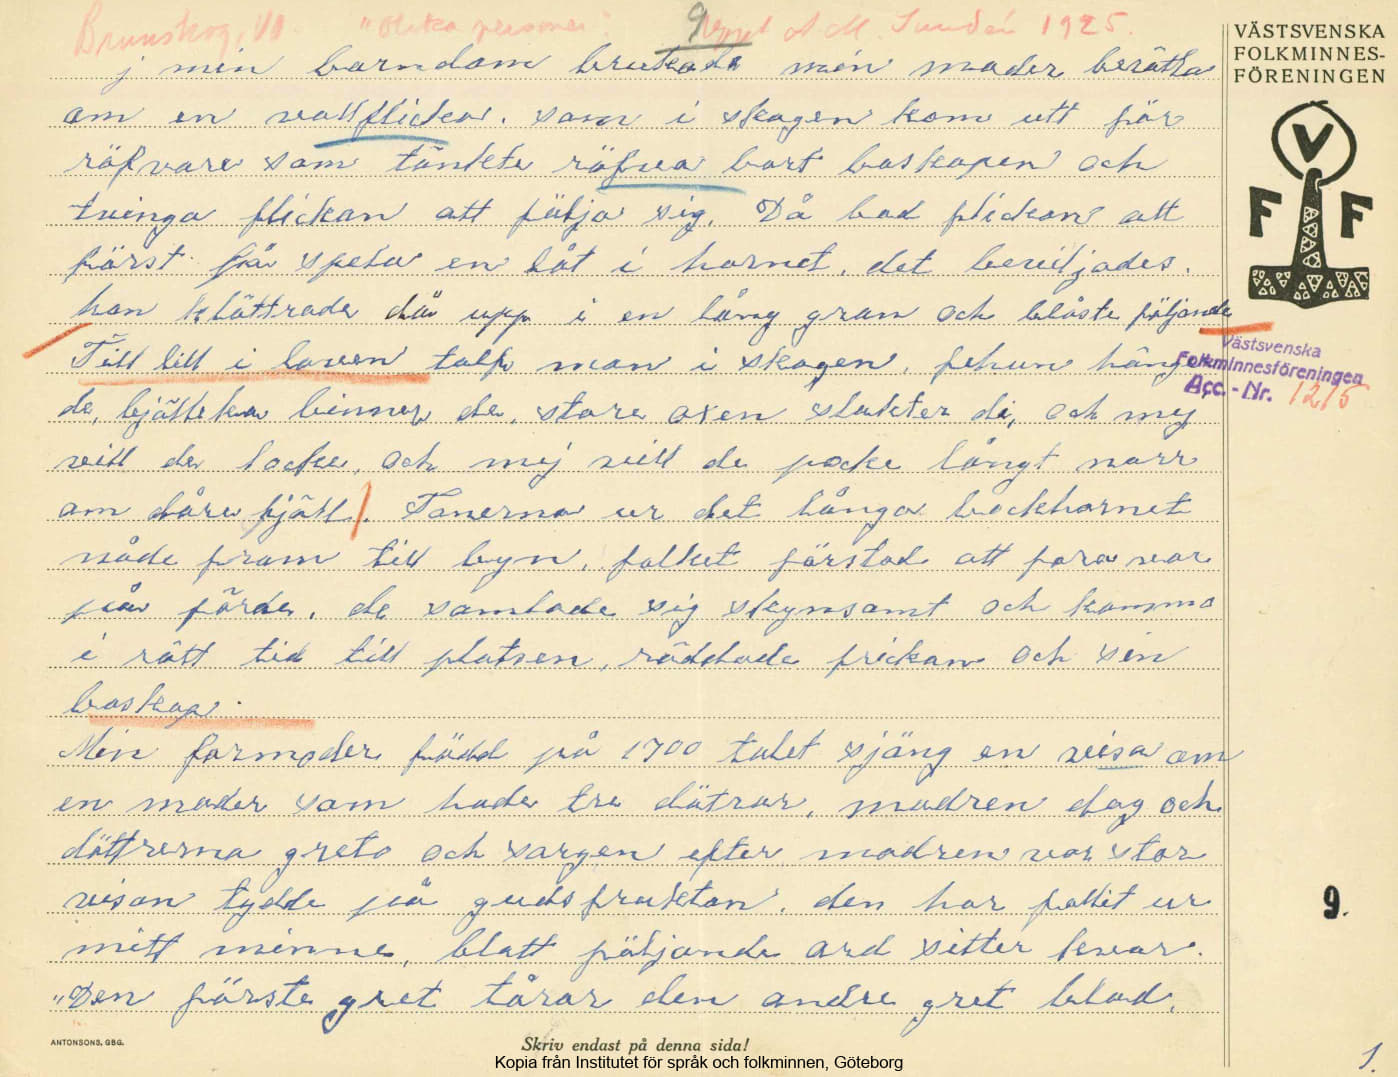 Brunskog, Vl. "Olika personer". 9 Uppt A M. Sundén 1925.
VÄSTSVENSKA
FOLKMINNES-
FÖRENINGEN
V
F F
j min barndom brukade min moder berätta
om en vallflicka. som i skogen kom utt för
röfvare som tänkte röfva bort boskapen och
tvinga flickan att fülja sig. Då bad flickan att
först få spela en låt i hornet. det beviljades.
hon klättrade då upp i en lång gran och blåste följande
Till lill i loven tolf man i skogen, fehun hänge
de, bjälleko binner de, store oxen slakter di, och mej
vill de locke, och mej vill de pocke långt norr
om dåre fjäll. Tonerna ur det långa bockhornet
nåde fram till byn, folket förstod att fara var
på färde. de samlade sig skynsamt och komma
i rätt tid till platsen, räddade frickan och sin
boskap.
Västsvenska
Folkminnesföreningen
Acc. - Nr. 1215
Min farmoder född på 1700 talet sjäng en visa om
en moder som hade tre dötrar, modren dog och
döttrerna greto och sorgen efter modren var stor
visan tydde på gudsfruktan. den har fallit ur
mitt minne, blott följande ord sitter kvar.
"Den förste gret tårar den andre gret blod,
9.
ANTONSONS, GBG.
Skriv endast på denna sida!
1.
Kopia från Institutet för språk och folkminnen, Göteborg